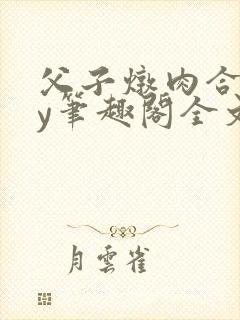 父子燉肉合
y筆趣閣全文
月雲雀